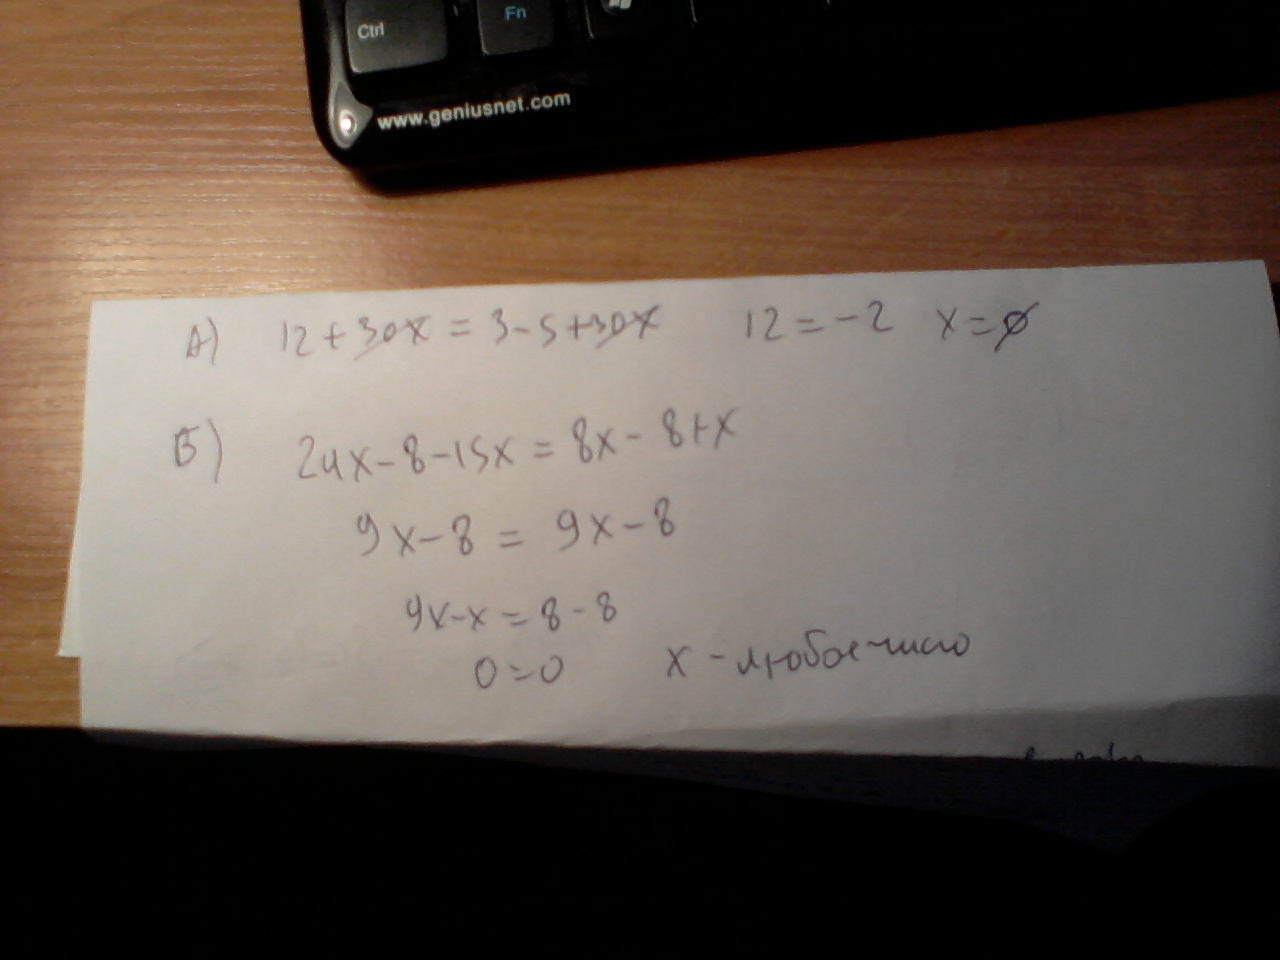 Ctrl
Fn
www.geniusnet.com
А) 12+30x = 3-5+30x 12=-2 x=∅
Б) 24x-8-15x = 8x-8+x
9x-8 = 9x-8
9x-x = 8-8
0=0 x - любое число